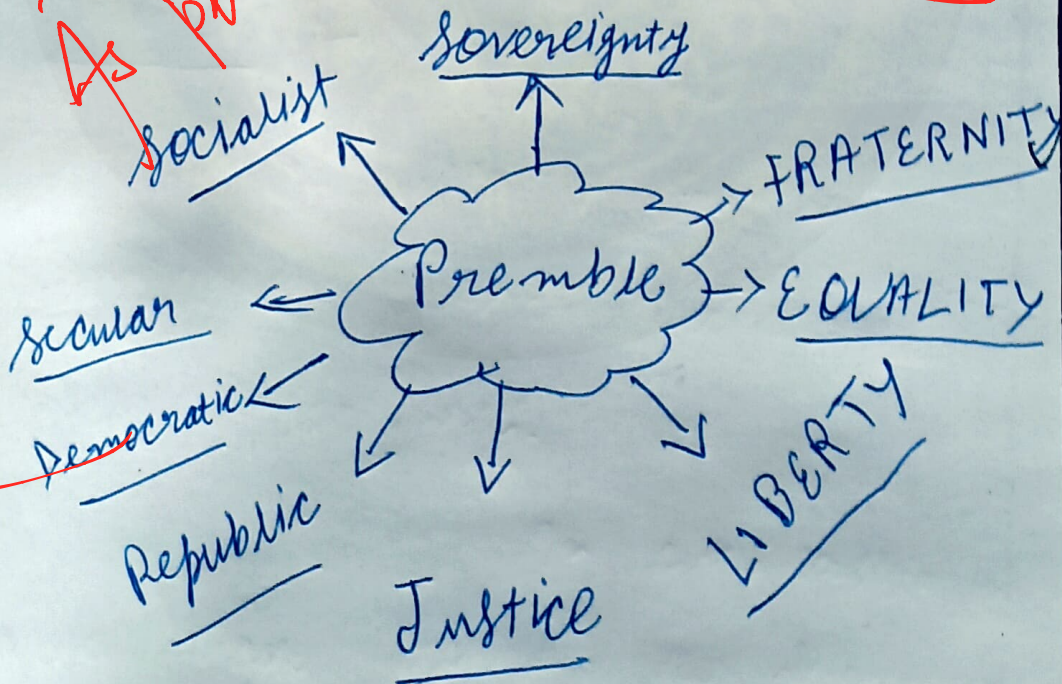 As
Sovereignty
Socialist
FRATERNITY
Premble
EQUALITY
Secular
Democratic
LIBERTY
Republic
Justice